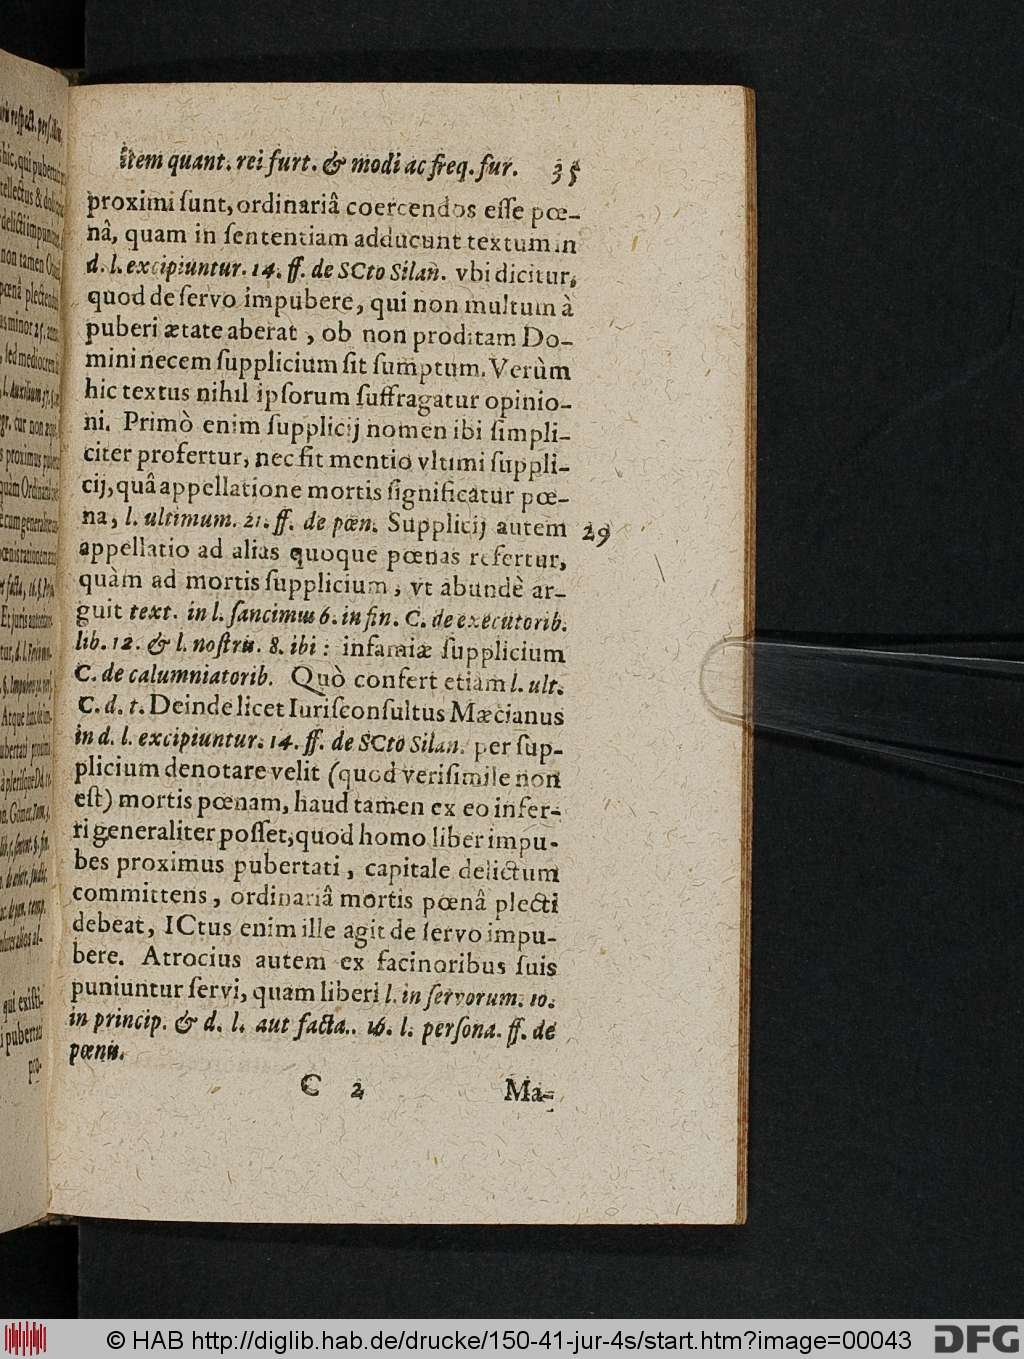 item quant. rei furt. & modi ac freq. fur. 35
proximi ſunt, ordinariâ coercendos eſſe pœ-
nâ, quam in ſententiam adducunt textum in
d. l. excipiuntur. 14. ff. de SCto Silan. vbi dicitur,
quod de ſervo impubere, qui non multum à
puberi ætate aberat, ob non proditam Do-
mini necem ſupplicium ſit ſumptum. Verùm
hic textus nihil ipſorum ſuffragatur opinio-
ni. Primò enim ſupplicij nomen ibi ſimpli-
citer profertur, nec fit mentio vltimi ſuppli-
cij, quâ appellatione mortis ſignificatur pœ-
na, l. ultimum. 21. ff. de pœn. Supplicij autem 29
appellatio ad alias quoque pœnas refertur,
quàm ad mortis ſupplicium, vt abundè ar-
guit text. in l. ſancimus 6. in fin. C. de executorib.
lib. 12. & l. noſtris. 8. ibi: infamiæ ſupplicium
C. de calumniatorib. Quò confert etiam l. ult.
C. d. t. Deinde licet Iuriſconſultus Mæcianus
in d. l. excipiuntur. 14. ff. de SCto Silan. per ſup-
plicium denotare velit (quod veriſimile non
eſt) mortis pœnam, haud tamen ex eo infer-
ri generaliter poſſet, quod homo liber impu-
bes proximus pubertati, capitale delictum
committens, ordinariâ mortis pœnâ plecti
debeat, ICtus enim ille agit de ſervo impu-
bere. Atrocius autem ex facinoribus ſuis
puniuntur ſervi, quam liberi l. in ſervorum. 10.
in princip. & d. l. aut facta.. 16. l. perſona. ff. de
pœnis.
C 2 Ma-
© HAB http://diglib.hab.de/drucke/150-41-jur-4s/start.htm?image=00043 DFG